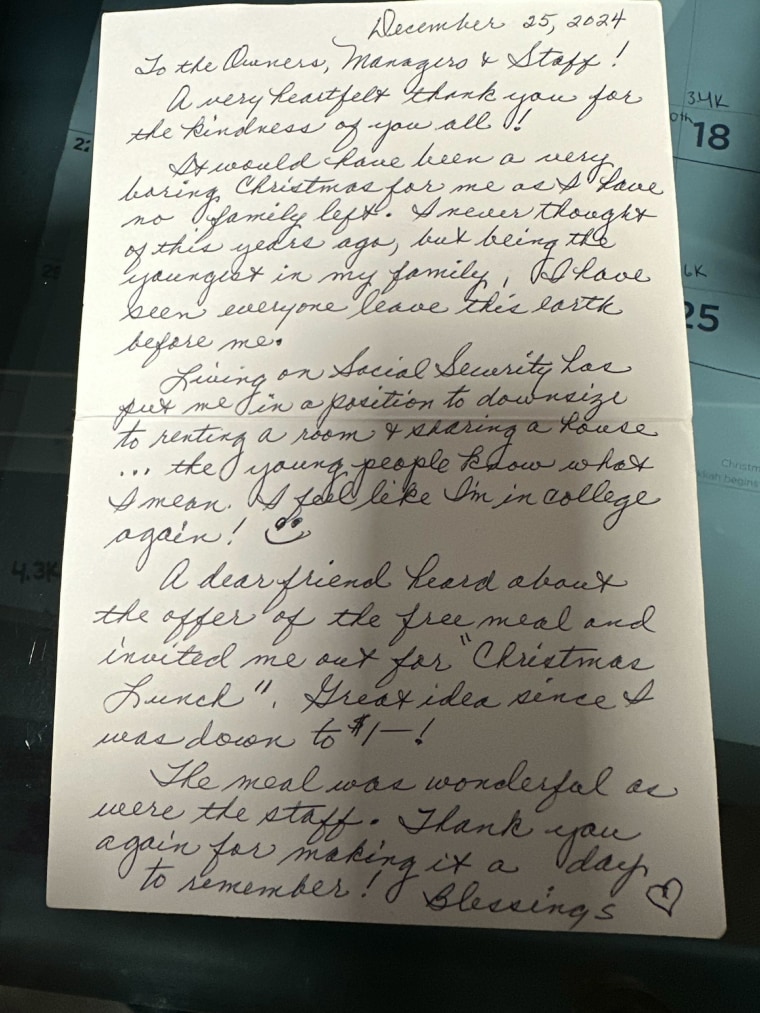 December 25, 2024
To the Owners, Managers & Staff!
A very heartfelt thank you for
the kindness of you all!
It would have been a very
boring Christmas for me as I have
no family left. I never thought
of this years ago, but being the
youngest in my family, I have
seen everyone leave this earth
before me.
Living on Social Security has
put me in a position to downsize
to renting a room & sharing a house
... the young people know what
I mean. I feel like I'm in college
again!
A dear friend heard about
the offer of the free meal and
invited me out for "Christmas
Lunch". Great idea since I
was down to $1—!
The meal was wonderful as
were the staff. Thank you
again for making it a day
to remember! Blessings
34K
18
25
4.3K